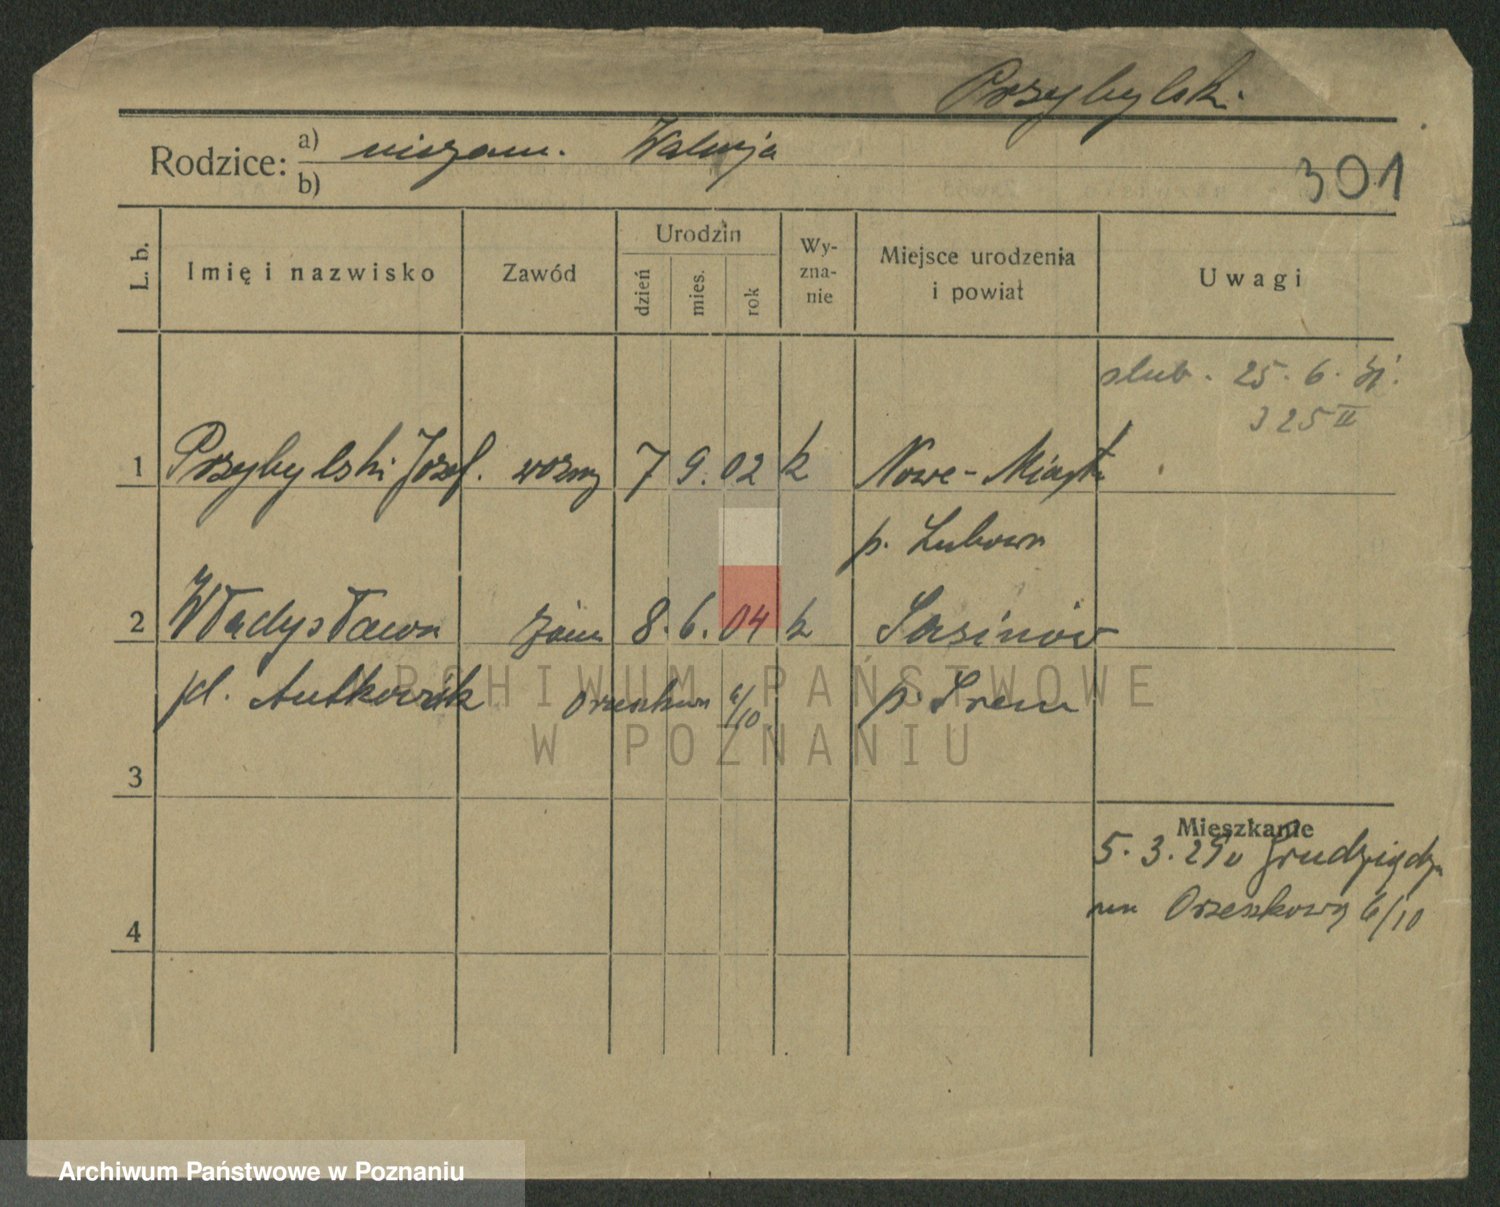 Przybylski.
Rodzice: a) niezam. Walerja
b)
301
L. b.
Imię i nazwisko
Zawód
Urodzin
dzień
mies.
rok
Wy-
zna-
nie
Miejsce urodzenia
i powiat
Uwagi
ślub. 25. 6. 31.
325 II
1 Przybylski Józef. woźny 7 9. 02 k Nowe-Miasto
p. Lubawa
2 Władysława żona 8. 6. 04 k
pd. Orzeszkowa 6/10 p. Śrem
3
Mieszkanie
5. 3. 29 Grudziądz
Orzeszkowy 6/10
4
ARCHIWUM PAŃSTWOWE
W POZNANIU
Archiwum Państwowe w Poznaniu